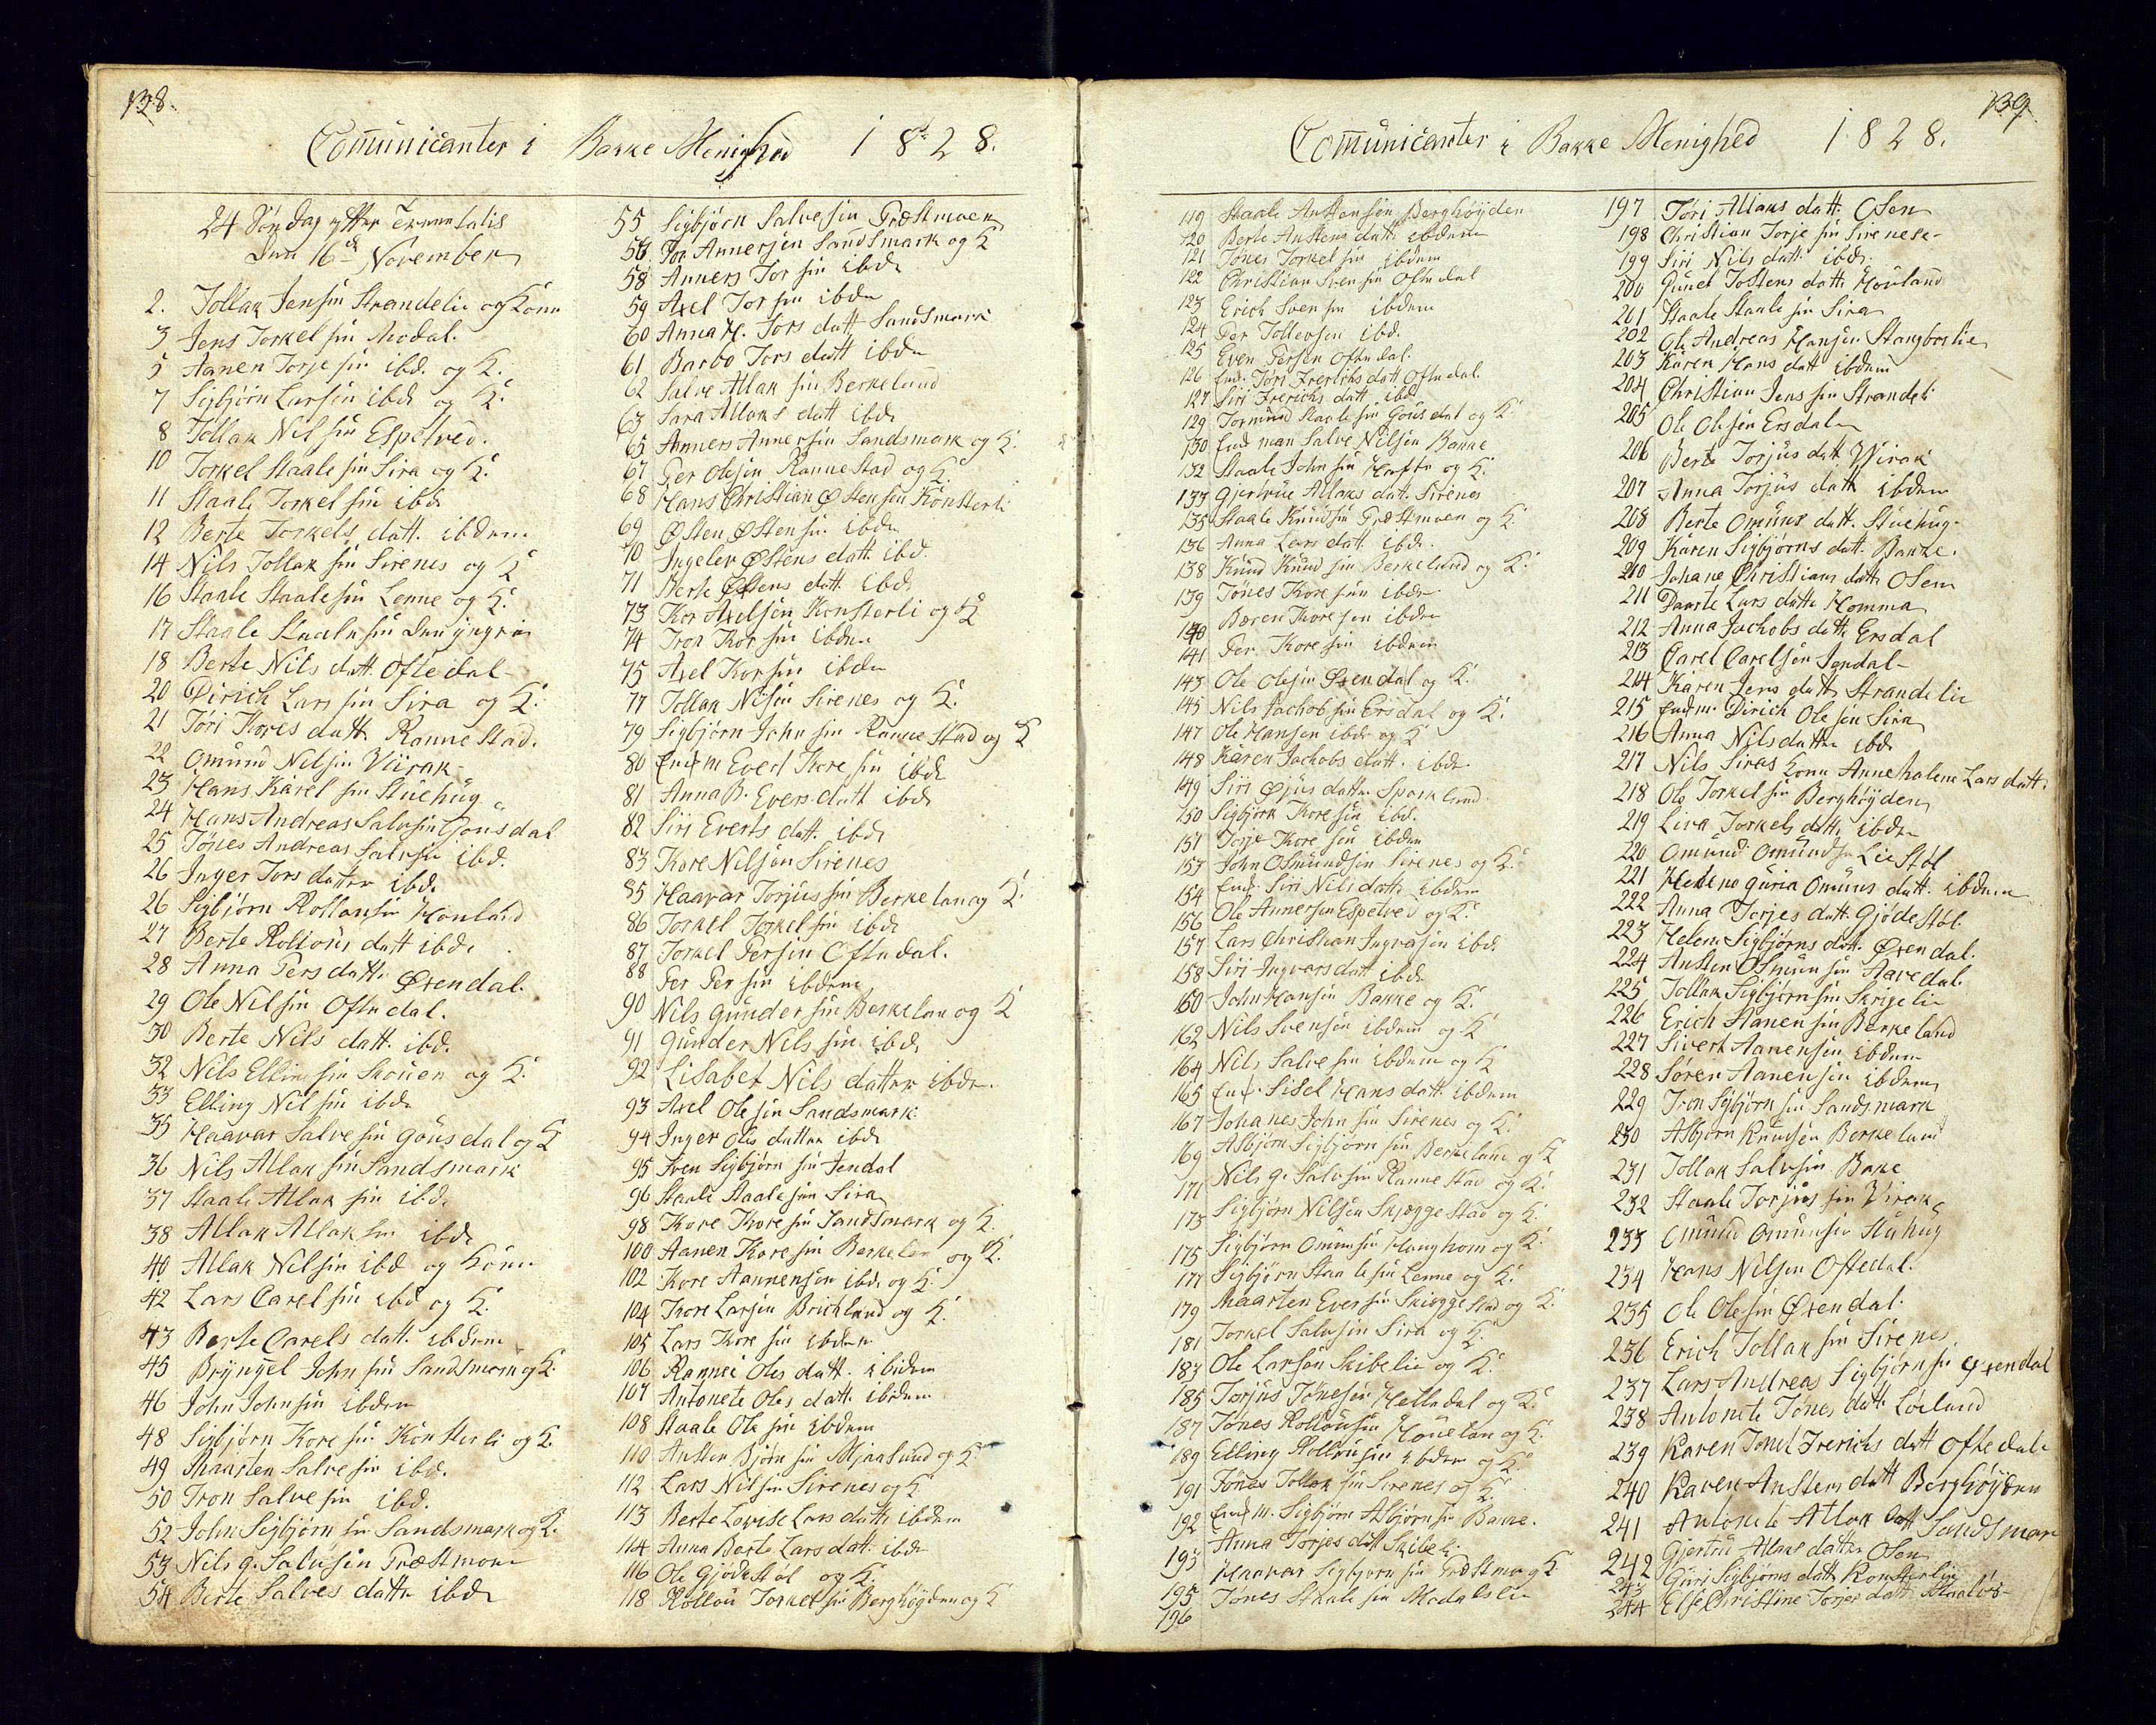 138.
Comunicanter i Bakke Menighed 1828.
24 Søndag efter Trinitatis
Den 16de November
2. Tollak Jensøn Strandelie og Kone
3 Jens Torkelsøn Modal.
5 Aanen Torjesøn ibd. og K:
7 Sigbjørn Larsøn ibd og K:
8 Tollak Nilsøn Espetved.
10 Torkel Staalesøn Sira og K:
11 Staale Torkelsøn ibd
12 Berte Torkels datt. ibdem
14 Nils Tollaksøn Sirenes og K
16 Staale Staalesøn Lenne og K:
17 Staale Staalesøn den yngre
18 Berte Nils datt. Oftedal
20 Dirich Larssøn Sira og K:
21 Tori Kores datt. Rannestad.
22 Omund Nilsøn Virak
23 Hans Karelsøn Stuehug
24 Hans Andreas Salvesøn Gousdal
25 Tønes Andreas Salvesøn ibd.
26 Inger Tors datter ibd.
26 Sigbjørn Rollousøn Houland
27 Berte Rollous datt ibd.
28 Anna Pers datt. Øxendal.
29 Ole Nilsøn Oftedal.
30 Berte Nils datt. ibd.
32 Nils Ellingsøn Skouen og K:
33 Elling Nilsøn ibd.
35 Haavar Salvesøn Gousdal og K
36 Nils Atlaksøn Sandsmark
37 Staale Atlaksøn ibd.
38 Atlak Atlaksøn ibd
40 Atlak Nilsøn ibd og Kone
42 Lars Carelsøn ibd og K:
43 Berte Carels datt. ibdem
45 Bryngel Johnsøn Sandsmark og K:
46 John Johnsøn ibdem
48 Sigbjørn Koresøn Konsterli og K:
49 Maarten Salvesøn ibd.
50 Tron Salvesøn ibd.
52 John Sigbjørnsøn Sandsmark og K.
53 Nils G. Salvesøn Præstmoen
54 Berte Salves datter ibd
55 Sigbjørn Salvesøn Præstmoen
56. Tor Annersøn Sandsmark og K
58 Anners Torsøn ibd.
59 Axel Torsøn ibdm
60 Anna H. Tors datt. Sandsmark
61 Barbo Tors datt ibdm
62 Salve Atlaksøn Berkeland
63 Sara Atlaks datt ibd.
65 Anners Annersøn Sandsmark og K.
67 Per Olesøn Rannestad og K:
68 Hans Christian Østensøn Konsterli
69 Østen Østensøn ibdm
70 Ingeler Østens datt ibd.
71 Berte Østens datt ibd.
73 Kor Axelsøn Konsterli og K
74 Tron Korsøn ibdm
75 Axel Korsøn ibdm
77 Tollak Nilsøn Sirenes og K:
79 Sigbjørn Johnsøn Rannestad og K
80 Enkm Evert Koresøn ibd
81 Anna B. Evers datt ibd
82 Siri Everts datt. ibd.
83 Kore Nilsøn Sirenes
85 Haavar Torjussøn Berkelan og K
86 Torkel Torkelsøn ibd
87 Torkel Persøn Oftedal.
88 Per Persøn ibdem
90 Nils Gundersøn Berkelan og K
91 Gunder Nilssøn ibd.
92 Lisabet Nils datter ibdm.
93 Axel Olesøn Sandsmark
94 Inger Oles datter ibd
95 Sven Sigbjørnsøn Jendal
96 Staale Staalesøn Sira
98 Kore Koresøn Sandsmark og K.
100 Aanen Koresøn Berkelan og K.
102 Kore Aannensøn ibd. og K.
104 Kore Larsøn Brichland og K.
105 Lars Koresøn ibdem
106 Rannei Oles datt. ibidem
107 Antonete Oles datt. ibidem
108 Staale Olesøn ibdem
110 Austen Bjørnsøn Mjaasund og K
112 Lars Nilsøn Sirenes og K
113 Berte Lovise Lars datt. ibdem
114 Anna Berte Lars datt. ibd
116 Ole Gjødestøl og K:
118 Rollou Torkelsøn Berghøyden og K
139.
Comunicanter i Bakke Menighed 1828.
119 Staale Austensøn Berghøyden
120 Berte Austens datt ibdem
121 Tønes Torkelsøn ibdem
122 Christian Svensøn Oftedal
123 Erich Svensøn ibdem
124 Per Tollevsøn ibd.
125 Even Persøn Oftedal.
126 Enk. Tori Frerichs datt Oftedal.
127 Siri Frerichs datt ibd
129 Tormund Staalesøn Gousdal og K:
130 Enkman Salve Nilsøn Bakke
132 Staale Johnsøn Haftn og K:
133 Gjertrue Atlaks datt. Sirenes
135 Staale Knudsøn Præstmoen og K:
136 Anna Lars datt ibd.
138 Knud Knudsøn Berkeland og K:
139 Tønes Koresøn ibdm
140 Bæren Koresøn ibdm
141 Per. Koresøn ibdem
143 Ole Olesøn Øxendal og K.
145 Nils Jachobsøn Ersdal og K.
147 Ole Hansøn ibd. og K
148 Karen Jachobs datt. ibd.
149 Siri Øjus datter Sparkland
150 Sigbjørn Koresøn ibd.
151 Torje Koresøn ibdem
153 John Osmundsøn Sirenes og K:
154 Enk. Siri Nils datt ibdem
156 Ole Annersøn Espetved og K.
157 Lars Christian Ingvasøn ibd.
158 Siri Ingvars datt ibd
160 John Hansøn Bakke og K.
162 Nils Svensøn ibdem og K
164 Nils Salvesøn ibdem og K
165 Enk. Sisel Hans datt. ibdem
167 Johanes Johnsøn Sirenes og K.
169 Asbjørn Sigbjørnsøn Berkeland og K
171 Nils G. Salvsøn Rannestad og K.
173 Sigbjørn Nilsøn Skjæggestad og K.
175 Sigbjørn Omunsøn Haughom og K.
177 Sigbjørn Staalesøn Lenne og K.
179 Maarten Eversøn Skiæggestad og K.
181 Torkel Salvesøn Sira og K.
183 Ole Larsøn Skibelie og K.
185 Torjus Tønesøn Helledal og K.
187 Tønes Rollousøn Houelan og K.
189 Elling Rollousøn ibdem og K.
191 Tønes Tollaksøn Sirenes og K
192 Enkm. Sigbjørn Asbjørnsøn Bakke.
193 Anna Torjes datt Skibeli.
195 Haavar Sigbjørnsøn Præstmo og K
196 Tønes Staalesøn Modalslie
197 Tori Atlaks datt. Osen
198 Christian Torjesøn Sirenese
199 Siri Nils datt. ibd.
200 Gunel Tostens datt. Houland
201 Staale Staalesøn Sira
202 Ole Andreas Hansøn Stangborlie
203 Karen Hans datt ibdem
204 Christian Jenssøn Strandeli
205 Ole Olesøn Ersdal
206 Berte Torjus datt Wirak
207 Anna Torjus datt ibdem
208 Berte Omuns datt. Stuehug.
209 Karen Sigbjørns datt. Bakke.
210 Johane Christians datt Osen
211 Daarte Lars datt. Homma
212 Anna Jachobs datt Ersdal
213 Carel Carelsøn Jendal
214 Karen Jens datt. Strandelie
215 Enkm. Dirich Olesøn Sira
216 Anna Nilsdatter ibd
217 Nils Siras Kone Annehelene Lars datt.
218 Ole Torkelsøn Berghøyden
219 Liva Torkels datt. ibdem
220 Omund Omundsøn Liestøl
221 Helene Guria Omuns datt. ibdem
222 Anna Torjes datt. Gjødestøl.
223 Helene Sigbjørns datt. Øxendal.
224 Austen Osmunsøn Aavedal.
225 Tollak Sigbjørnsøn Skrigelie
226 Erich Aanensøn Berkeland
227 Sivert Aanensøn ibdem
228 Søren Aanensøn ibdem
229 Tron Sigbjørnsøn Sandsmark
230 Asbjørn Knudsøn Berkeland
231 Tollak Salvesøn Bake
232 Staale Torjussøn Virak
233 Omund Omunsøn Stuhug
234 Hans Nilsøn Oftedal.
235 Ole Olesøn Øxendal.
236 Erich Tollaksøn Sirenes
237 Lars Andreas Sigbjørnsøn Øxendal
238 Antonete Tønes datt Løvland
239 Karen Tonet Frerichs datt Oftedal
240 Karen Austens datt Berghøyden
241 Antonete Atlak datt Sandsmark
242 Gjertru Atlaks datter Osen
243 Guri Sigbjørns datt. Konsterlie
244 Else Christine Torjes datt.